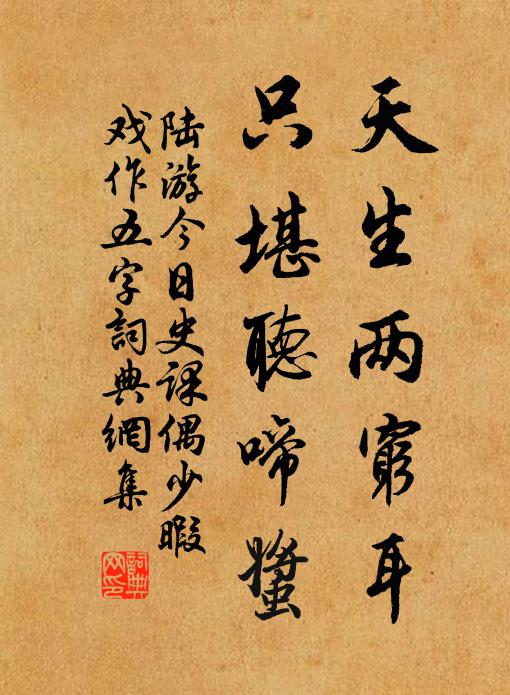 天生两窮耳
只堪聴啼螿
陆游今日史课偶少暇
戏作五字詞典網集
詞典
网印